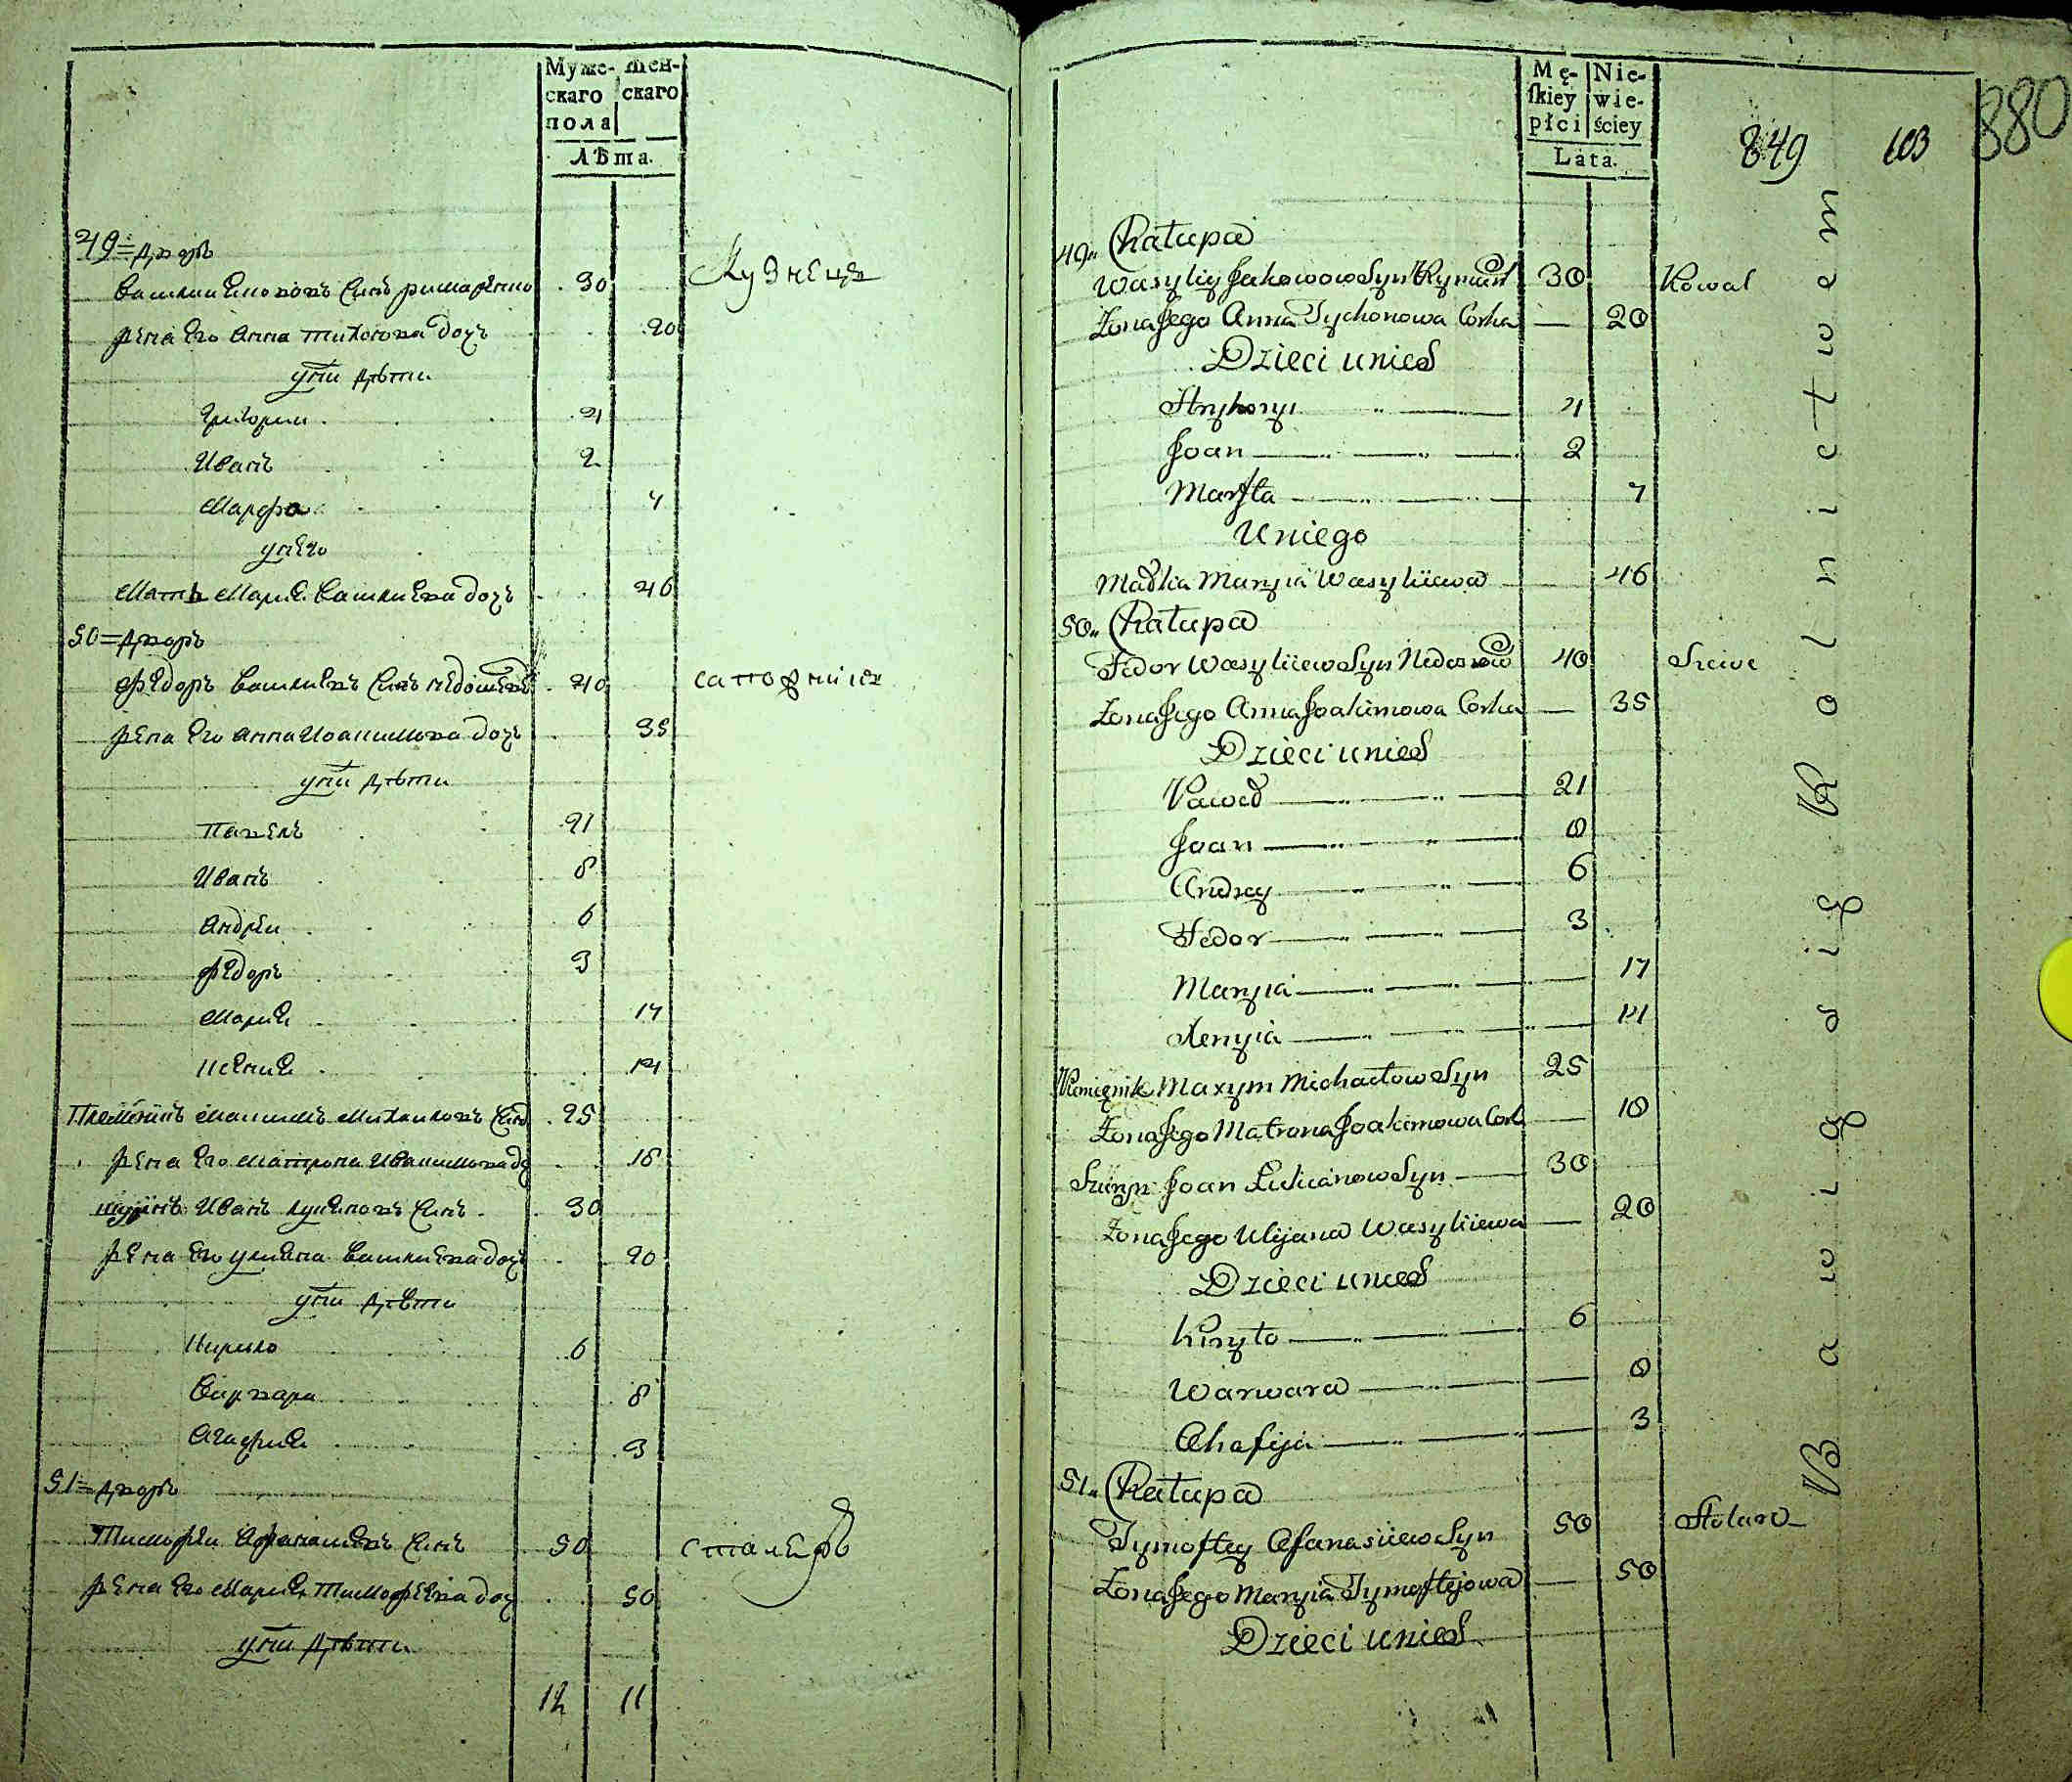 Муже-
скаго
пола
Жен-
скаго
Лѣта.
49= дворъ
Василий Якововъ Синъ римаренко 30 Кузнецъ
Жена Его Анна Тихонова дочъ 20
у них дѣти
Григорий 4
Иванъ 2
Марфа 7
у него
Мать Мария Василиева дочъ 46
50= дворъ
Федоръ Василиевъ Синъ 40 сапожникъ
Жена Его Анна Иоакимова дочъ 35
у них дѣти
Павелъ 21
Иванъ 8
Андрей 6
Федоръ 3
Мария 17
Ксения 14
Племѣникъ Максимъ Михаиловъ Синъ 25
Жена Его Матрона Иоакимова до 18
шуринъ Иванъ лукяновъ Синъ 30
Жена Его улияна Василиева дочъ 20
у них дѣти
Кирило 6
Варвара 8
Агафия 3
51= дворъ
Тимофей Афанасиевъ Синъ 50 столяръ
Жена Его Мария Тимофеева доч 50
у них дѣти
12 11
Mę-
skiey
płci
Nie-
wie-
ściey
Lata.
849 103 880
49. Chałupa
Wasyliy Jakowow Syn 30 Kowal
Zona Jego Anna Tychonowa Corka 20
Dzieci u nich
Hryhoryi 4
Joan 2
Marfta 7
U niego
Matka Maryia Wasyliiewa 46
50. Chałupa
Fedor Wasyliiew Syn 40 Szewc
Zona Jego Anna Joakimowa Corka 35
Dzieci u nich
Paweł 21
Joan 8
Andrey 6
Fedor 3
Maryia 17
Xenyia 14
Plemięnik Maxym Michaiłow Syn 25
Zona Jego Matrona Joakimowa Cork 18
Szuryn Joan Lukianow Syn 30
Zona Jego Ulijana Wasyliiewa 20
Dzieci u nich
Kiryło 6
Warwara 8
Ahafija 3
51. Chałupa
Tymoftey Afanasiiew Syn 50 Stolarz
Zona Jego Maryia Tymoftejowa 50
Dzieci u nich
Bawiąd się Rolnictwem